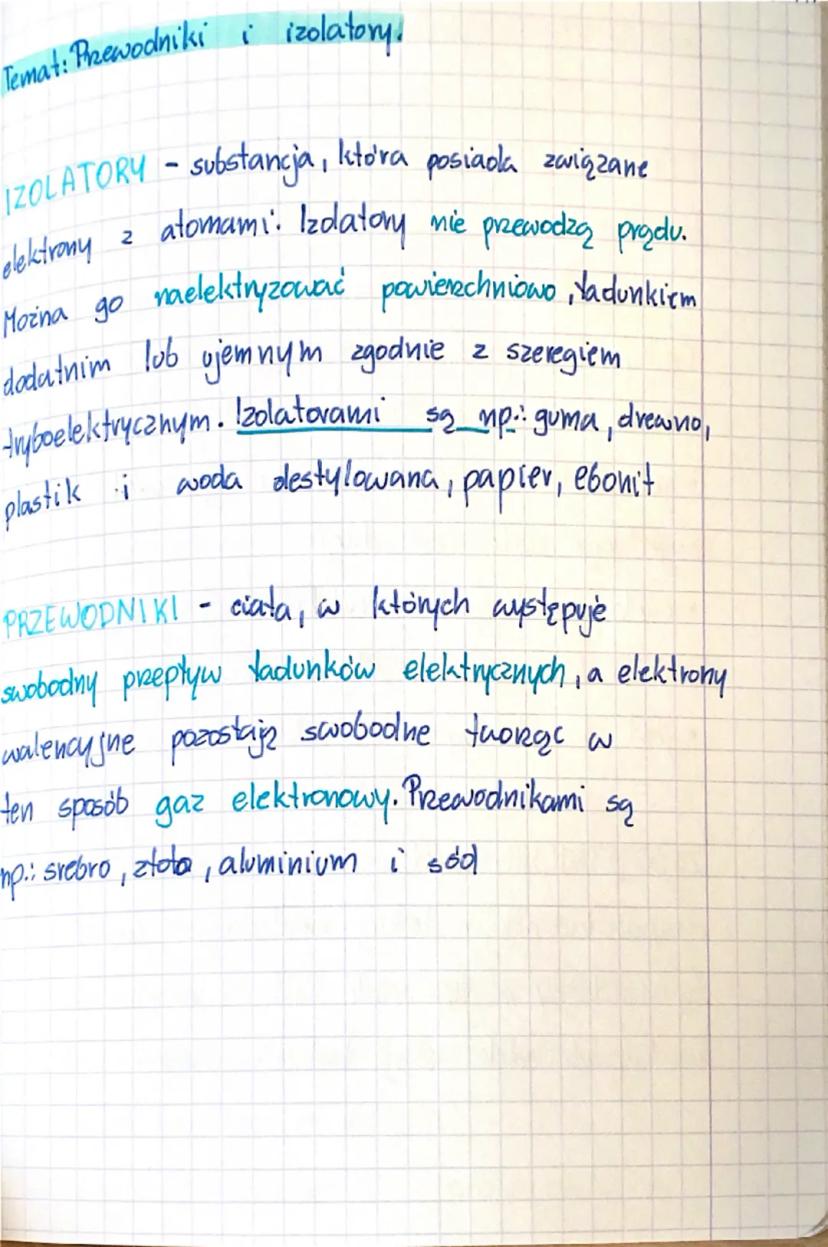 Temat: Przewodniki i izolatory.
IZOLATORY - substancja, która posiada związane
elektrony z atomami. Izolatory nie przewodzą prądu.
Można go naelektryzować powierzchniowo, ładunkiem
dodatnim lub ujemnym zgodnie z szeregiem
tryboelektrycznym. Izolatorami są np.: guma, drewno,
plastik i woda destylowana, papier, ebonit
PRZEWODNIKI - ciała, w których występuje
swobodny przepływ ładunków elektrycznych, a elektrony
walencyjne pozostają swobodne tworząc w
ten sposób gaz elektronowy. Przewodnikami są
np.: srebro, złoto, aluminium i sód